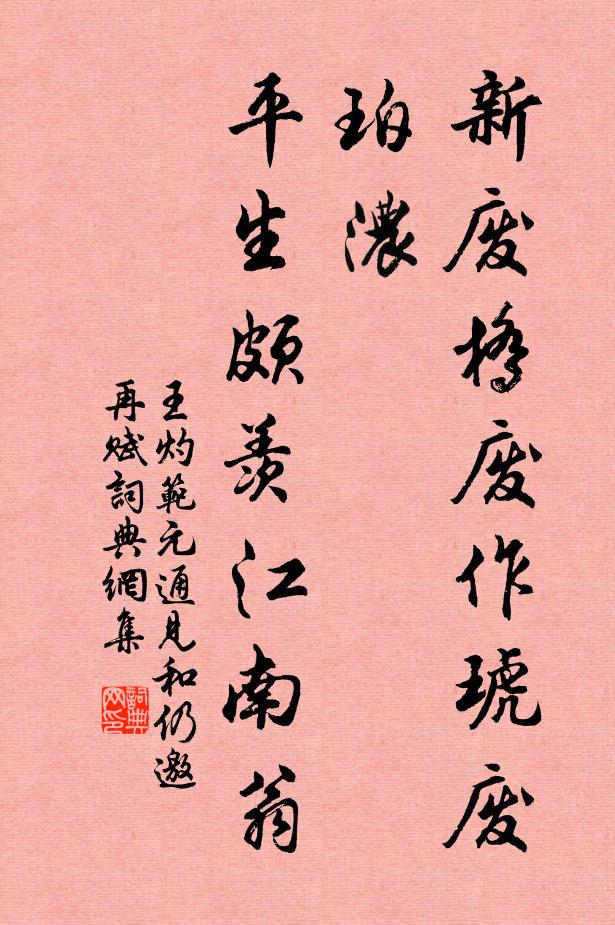 新废橋废作琥废
珀濃
平生頗羨江南翁
王灼範元通見和仍邀
再賦詞典網集
詞典
网印